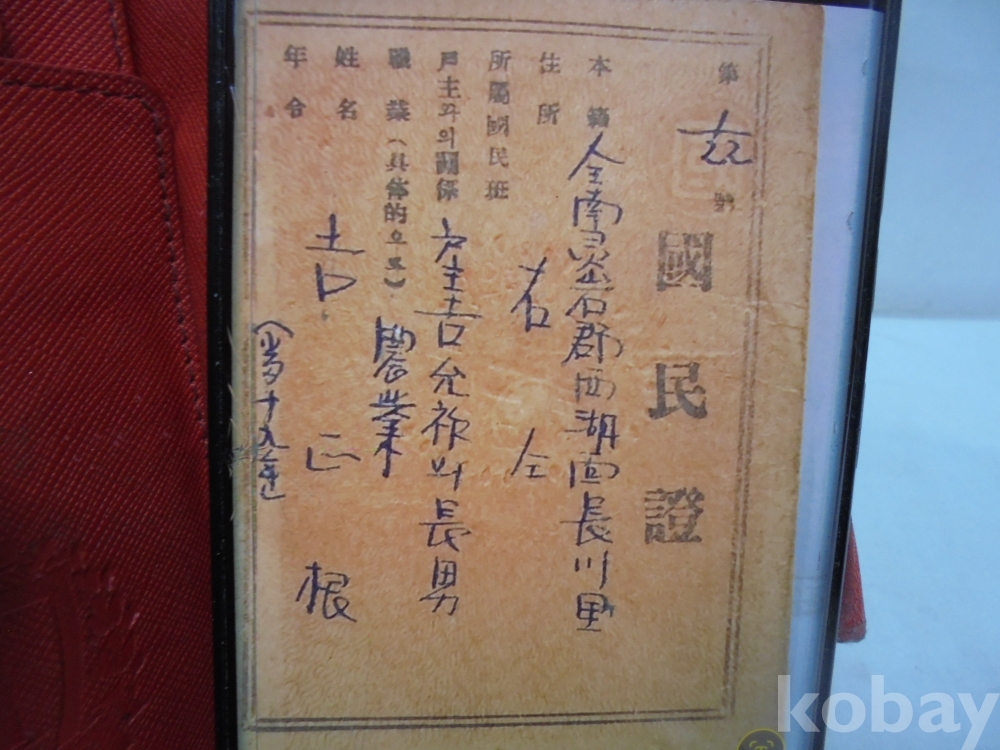 第 七22 號
國民證
本籍 全南灵岩郡西湖面長川里
住所 右仝
所屬國民班
戶主와의關係 戶主吉允祚의長男
職業(具体的으로) 農業
姓名 吉正根
年令 十九
kobay